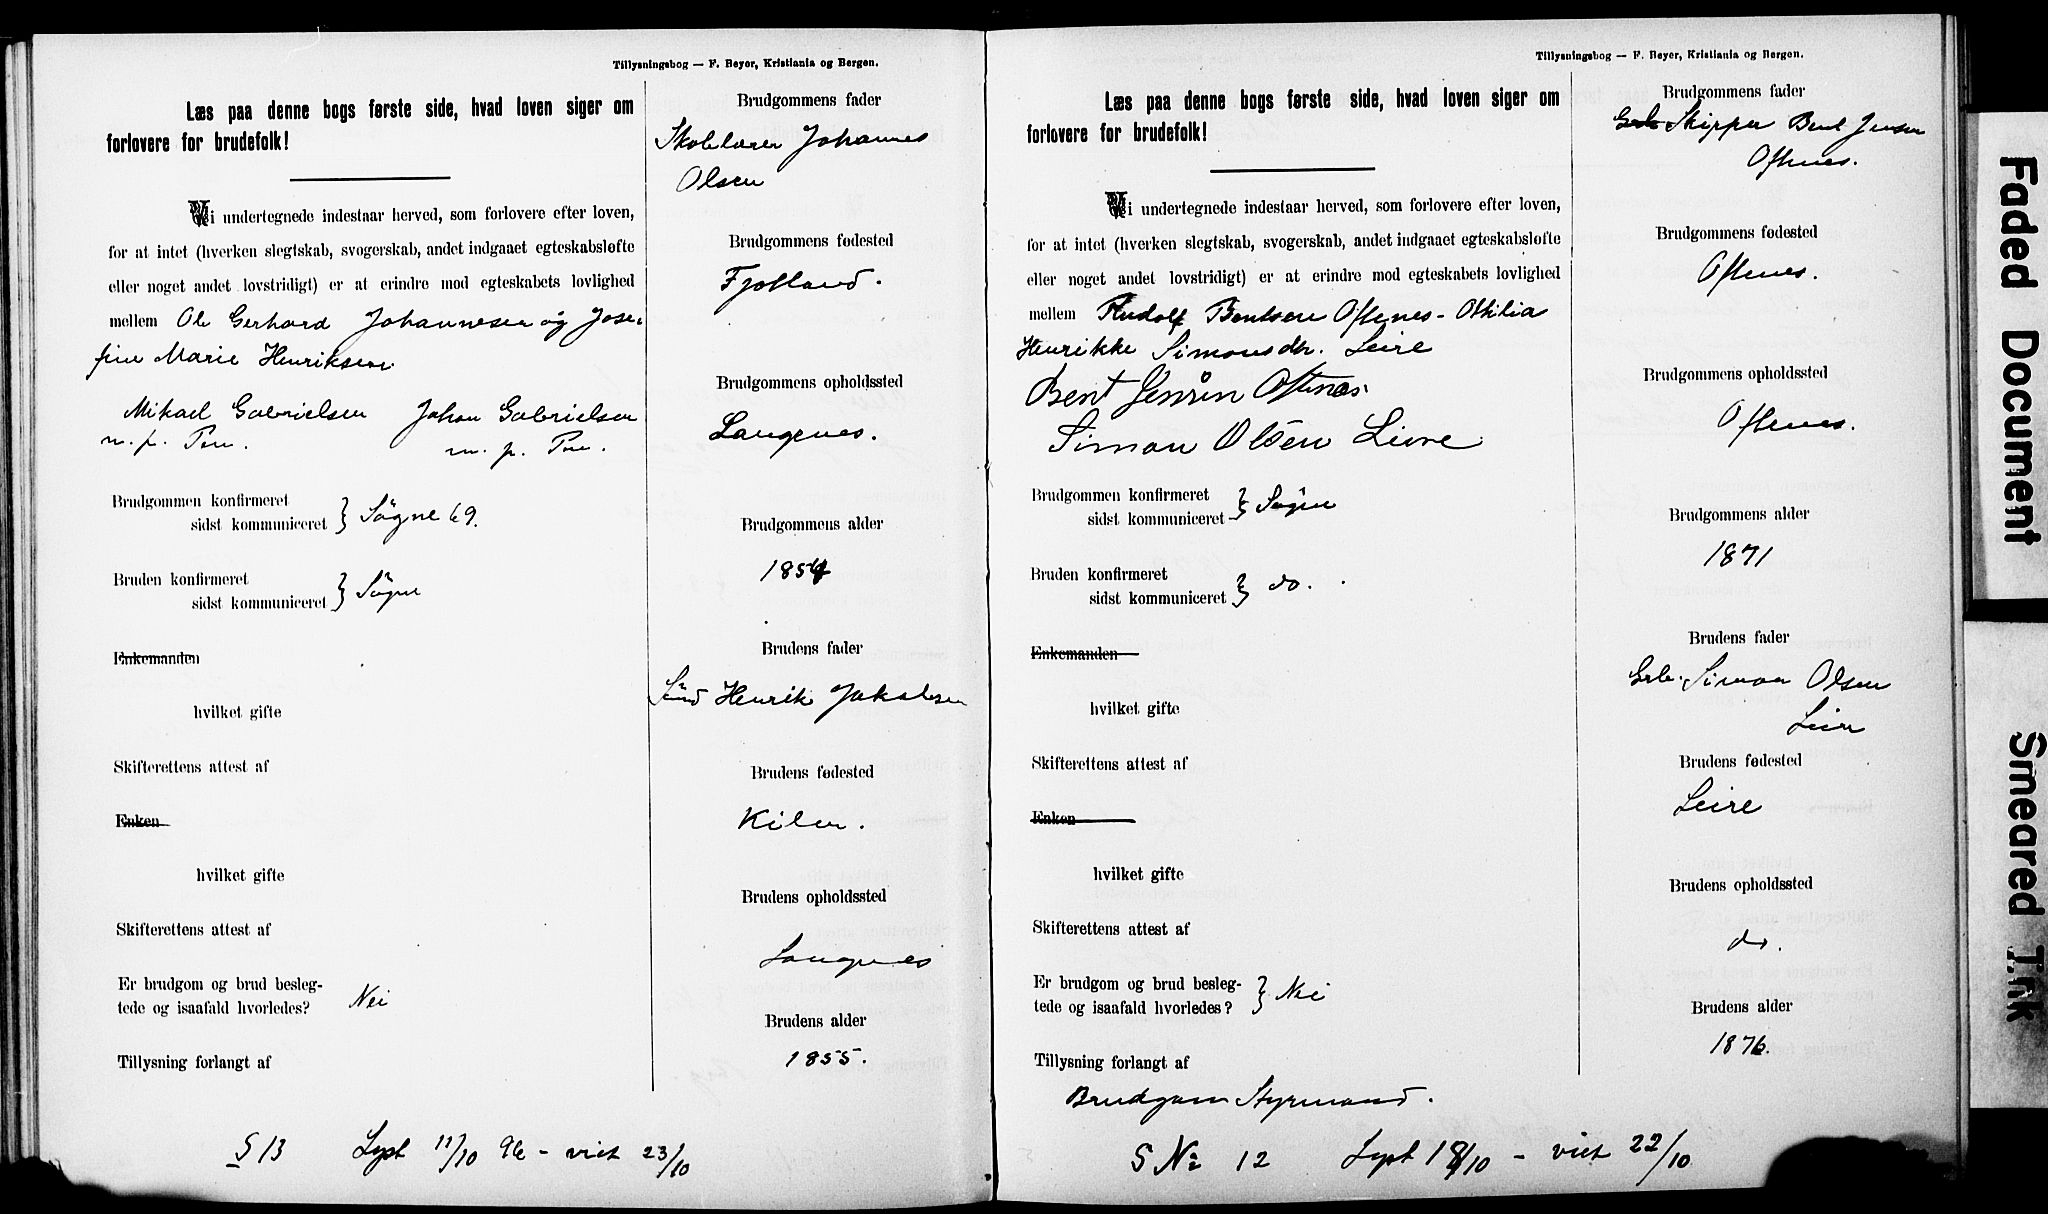 Tillysningsbog — F. Beyer, Kristiania og Bergen.
Læs paa denne bogs første side, hvad loven siger om
forlovere for brudefolk!
Vi undertegnede indestaar herved, som forlovere efter loven,
for at intet (hverken slegtskab, svogerskab, andet indgaaet egteskabsløfte
eller noget andet lovstridigt) er at erindre mod egteskabets lovlighed
mellem Ole Gerhard Johannesen og Jose-
fine Marie Henriksen.
Mikael Gabrielsen Johan Gabrielsen
m. p. Pen. m. p. Pen.
Brudgommen konfirmeret
sidst kommuniceret } Søgne 69.
Bruden konfirmeret
sidst kommuniceret } Søgne
Enkemanden
hvilket gifte
Skifterettens attest af
Enken
hvilket gifte
Skifterettens attest af
Er brudgom og brud besleg-
tede og isaafald hvorledes? Nei
Tillysning forlangt af
Brudgommens fader
Skolelærer Johannes
Olsen
Brudgommens fødested
Fjotland.
Brudgommens opholdssted
Langenes.
Brudgommens alder
1854
Brudens fader
Henrik Jakobsen
Brudens fødested
Kilen.
Brudens opholdssted
Langenes
Brudens alder
1855.
S 13 Lyst 11/10 96 - viet 23/10
Tillysningsbog — F. Beyer, Kristiania og Bergen.
Læs paa denne bogs første side, hvad loven siger om
forlovere for brudefolk!
Vi undertegnede indestaar herved, som forlovere efter loven,
for at intet (hverken slegtskab, svogerskab, andet indgaaet egteskabsløfte
eller noget andet lovstridigt) er at erindre mod egteskabets lovlighed
mellem Rudolf Bentsen Oftenes - Othilia
Henrikke Simonsdtr. Leire
Bent Jensen Oftenes.
Simon Olsen Leire
Brudgommen konfirmeret
sidst kommuniceret } Søgne
Bruden konfirmeret
sidst kommuniceret } do.
Enkemanden
hvilket gifte
Skifterettens attest af
Enken
hvilket gifte
Skifterettens attest af
Er brudgom og brud besleg-
tede og isaafald hvorledes? } Nei
Tillysning forlangt af
Brudgom Styrmand.
Brudgommens fader
Grb. Skipper Bent Jensen
Oftenes.
Brudgommens fødested
Oftenes.
Brudgommens opholdssted
Oftenes.
Brudgommens alder
1871
Brudens fader
Grb. Simon Olsen
Leire
Brudens fødested
Leire
Brudens opholdssted
do.
Brudens alder
1876.
S No 12 Lyst 18/10 - viet 22/10
Faded Document
Smeared Ink